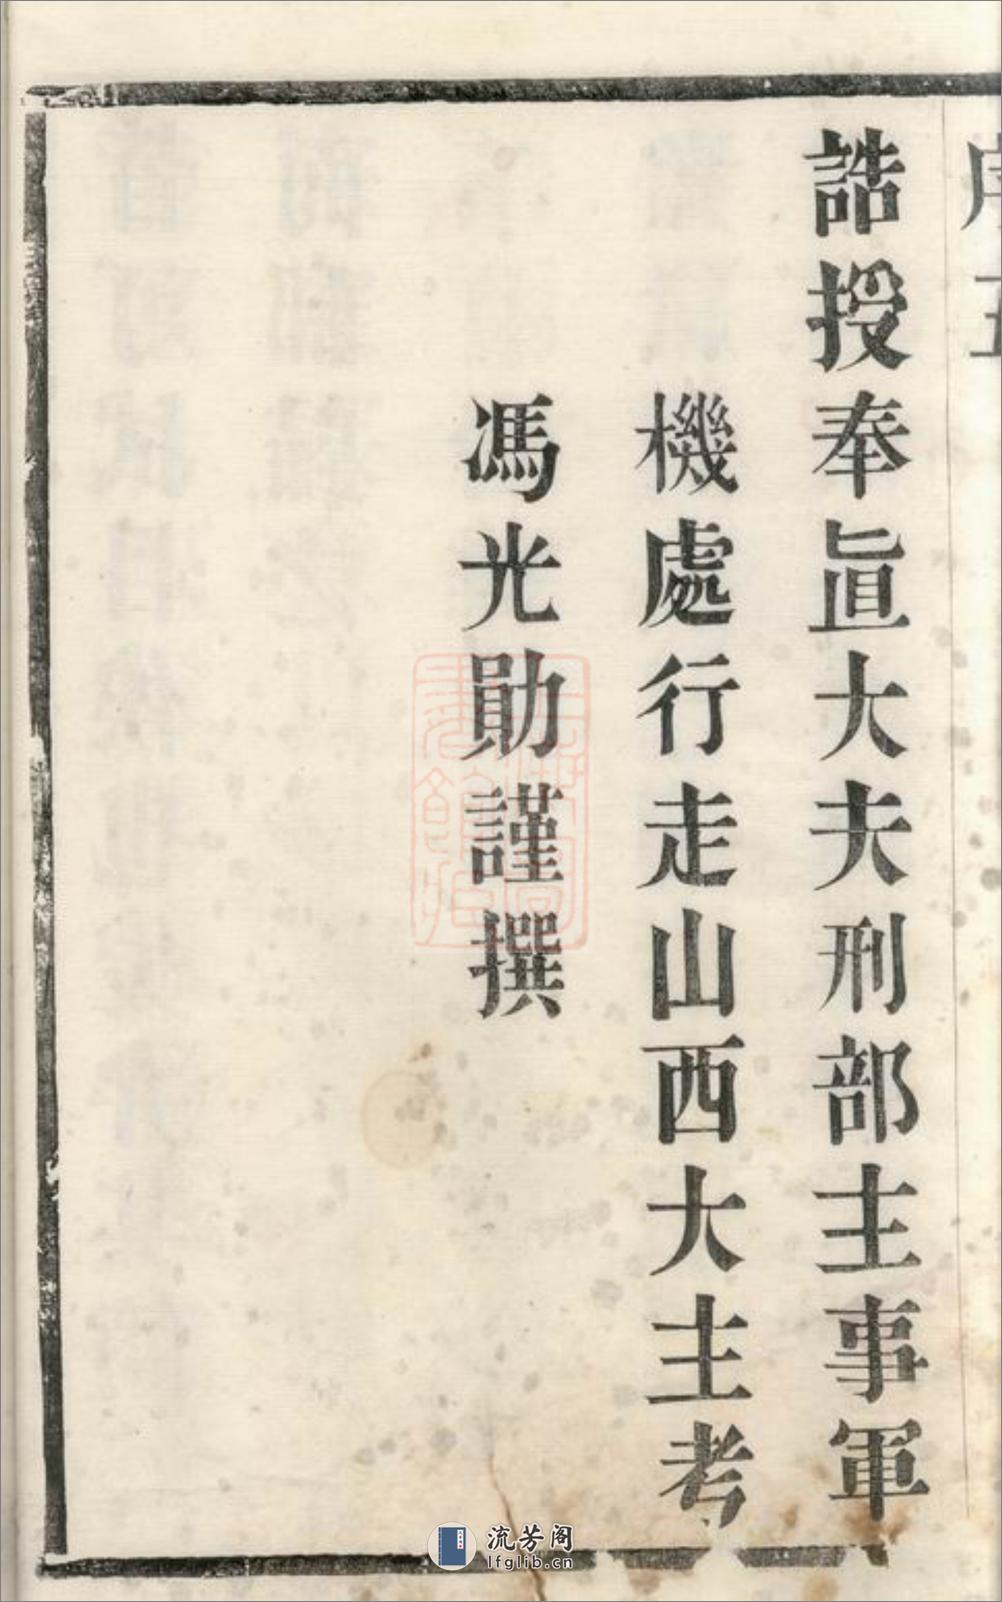 序五
誥授奉直大夫刑部主事軍
機處行走山西大主考
馮光勛謹撰
流芳阁
lfglib.cn